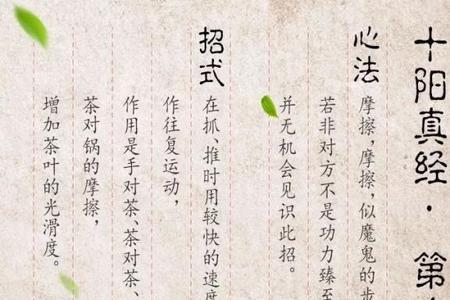 十阳真经·第
心法
摩擦,摩擦,似魔鬼的步
若非对方不是功力臻至
并无机会见识此招。
招式
在抓、推时用较快的速度
作往复运动,
作用是手对茶、茶对茶、
茶对锅的摩擦,
增加茶叶的光滑度。